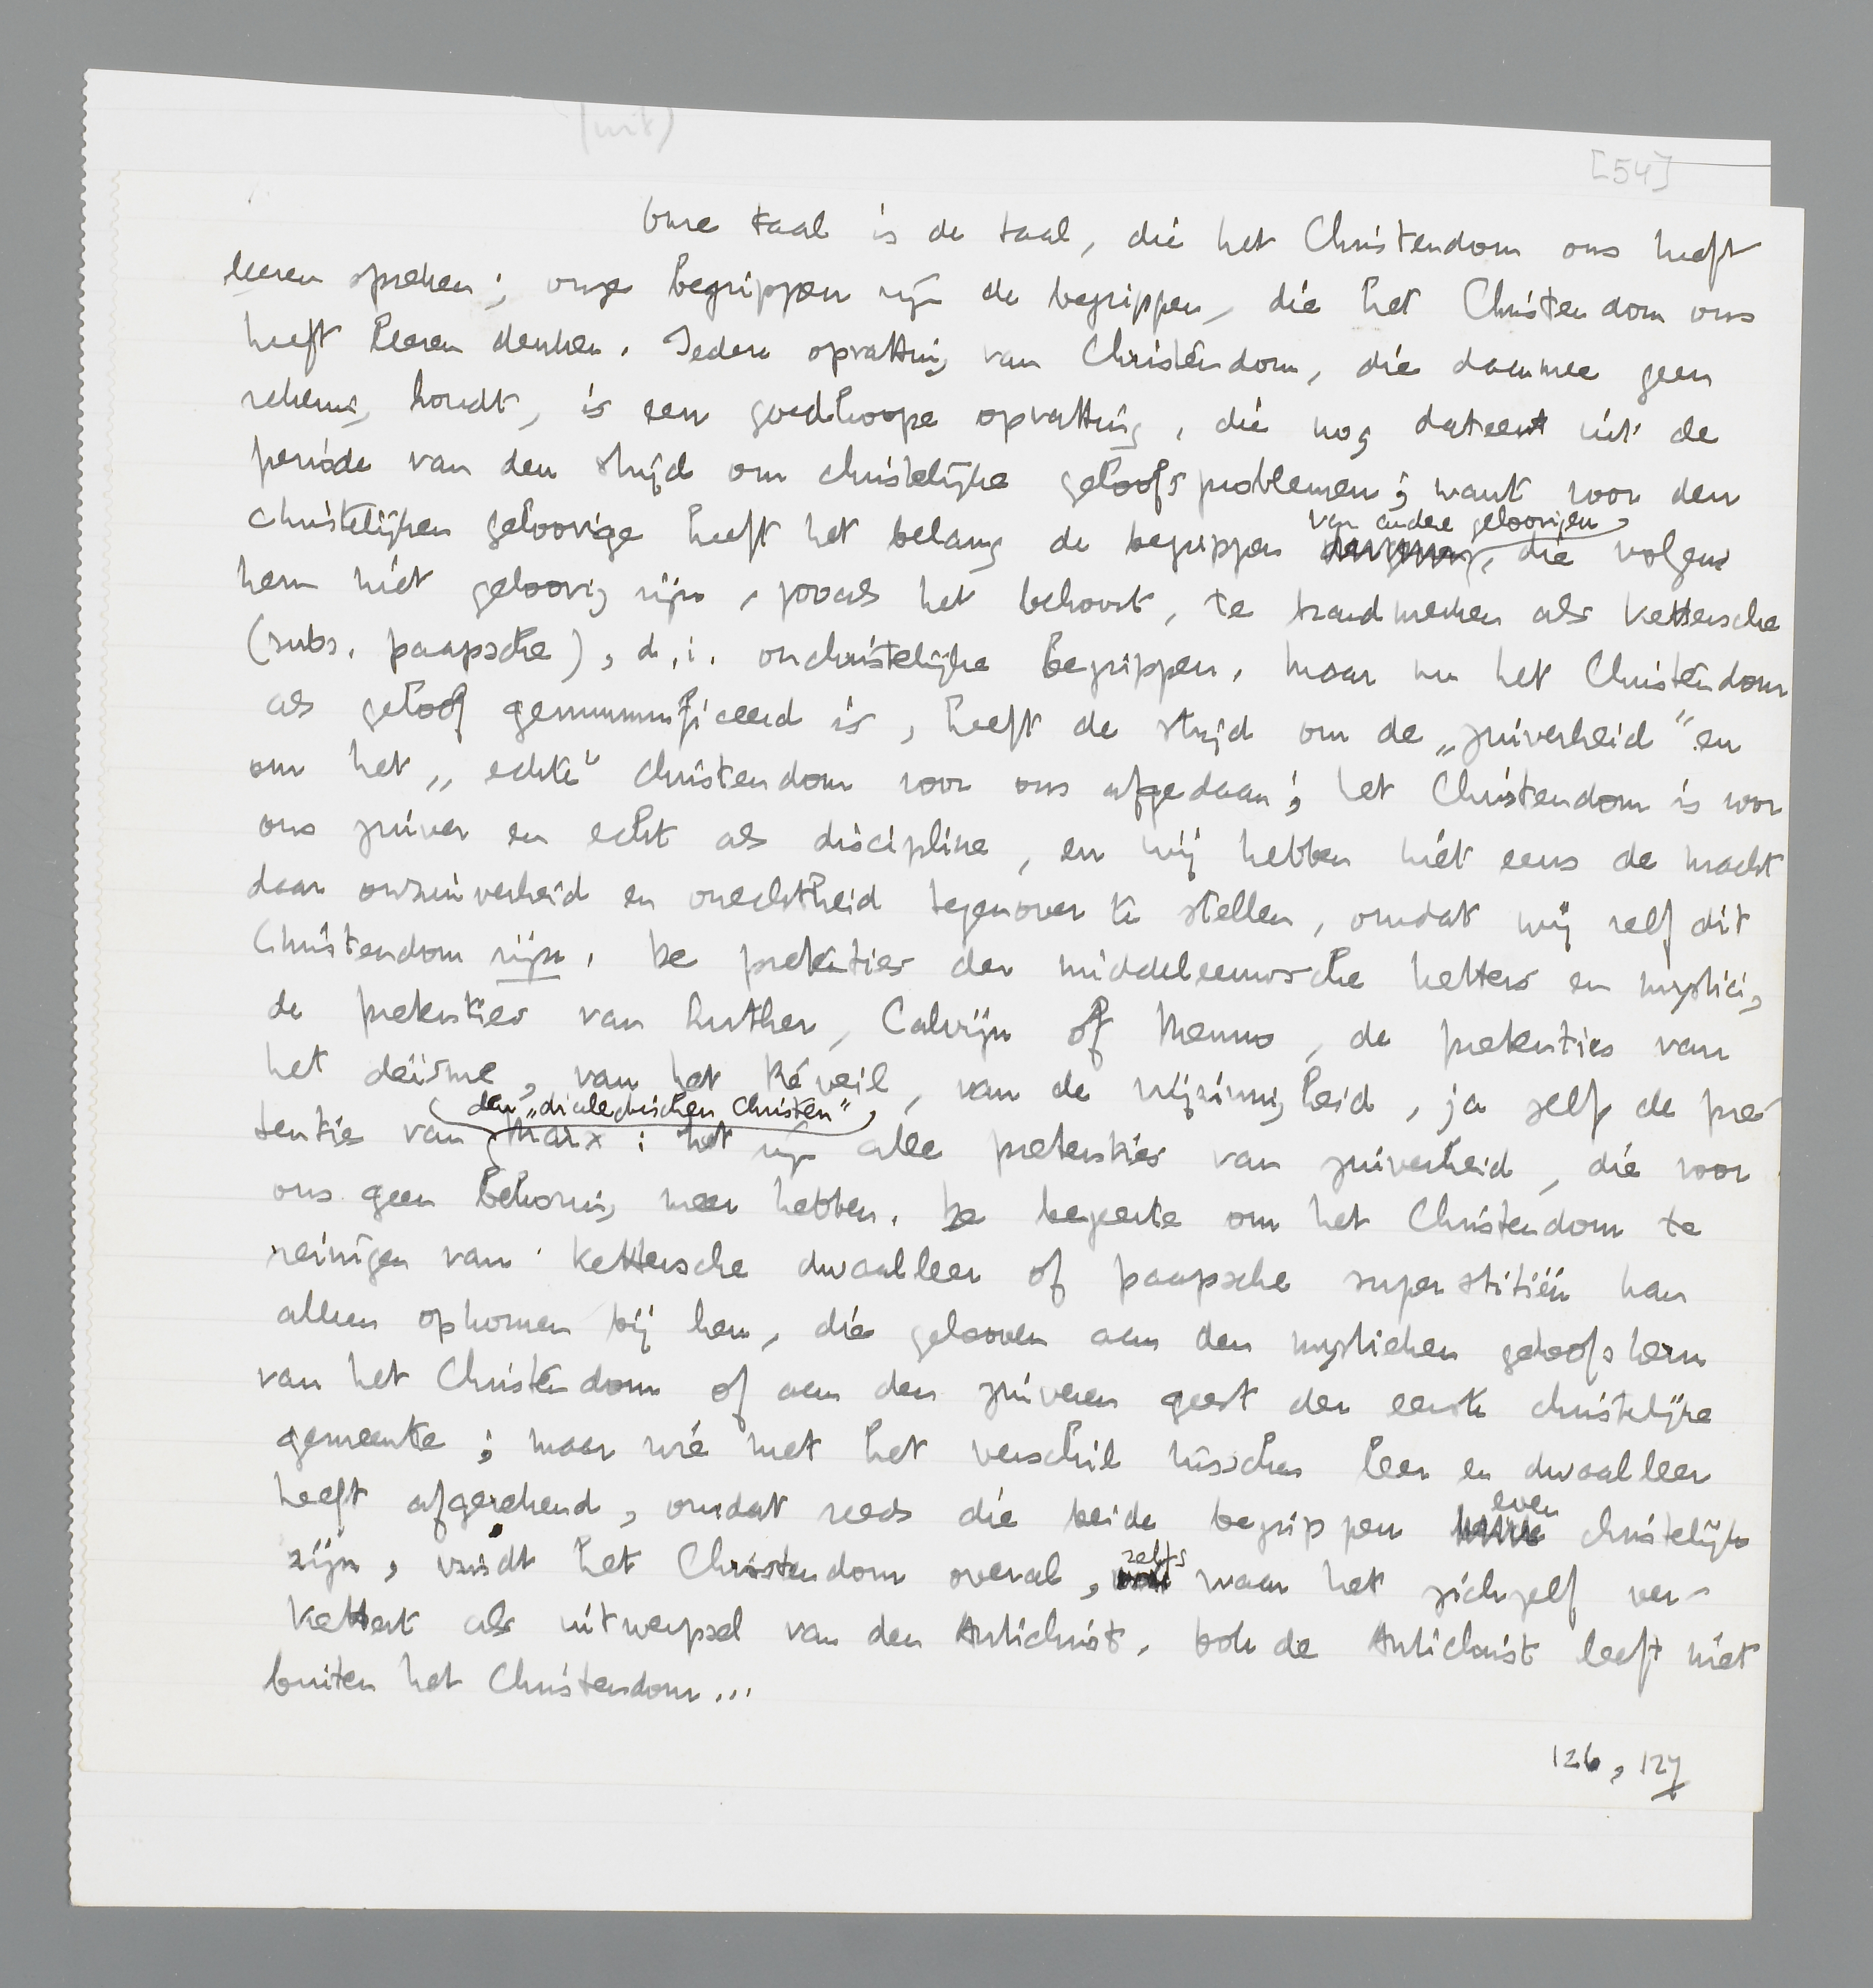 (wit)
[54]
Onze taal is de taal, die het Christendom ons heeft
leeren spreken; onze begrippen zijn de begrippen, die het Christendom ons
heeft leeren denken. Iedere opvatting van Christendom, die daarmee geen
rekening houdt, is een goedkoope opvatting, die nog dateert uit de
periode van den strijd om christelijke geloofsproblemen; want voor den
christelijken geloovige heeft het belang de begrippen van andere geloovigen, die volgens
hem niet geloovig zijn, zooals het behoort, te brandmerken als kettersche
(subs. paapsche), d.i. onchristelijke begrippen. Maar nu het Christendom
als geloof gemummificeerd is, heeft de strijd om de „zuiverheid" en
om het „echte" Christendom voor ons afgedaan; het Christendom is voor
ons zuiver en echt als discipline, en wij hebben niet eens de macht
daar onzuiverheid en onechtheid tegenover te stellen, omdat wij zelf dit
Christendom zijn. De pretenties der middeleeuwsche ketters en mystici,
de pretenties van Luther, Calvijn of Menno, de pretenties van
het deïsme, van het Réveil, van de vrijzinnigheid, ja zelf de pre-
tenties van den „dialectischen Christen" Marx: het zijn alle pretenties van zuiverheid, die voor
ons geen bekoring meer hebben. De begeerte om het Christendom te
reinigen van kettersche dwaalleer of paapsche superstitiën kan
alleen opkomen bij hen, die gelooven aan den mystieken geloofskern
van het Christendom of aan den zuiveren geest der eerste christelijke
gemeente; maar wie met het verschil tusschen leer en dwaalleer
heeft afgerekend, omdat reeds die beide begrippen even christelijk
zijn, vindt het Christendom overal, zelfs waar het zichzelf ver-
kettert als uitwerpsel van den Antichrist. Ook de Antichrist leeft niet
buiten het Christendom...
126, 127